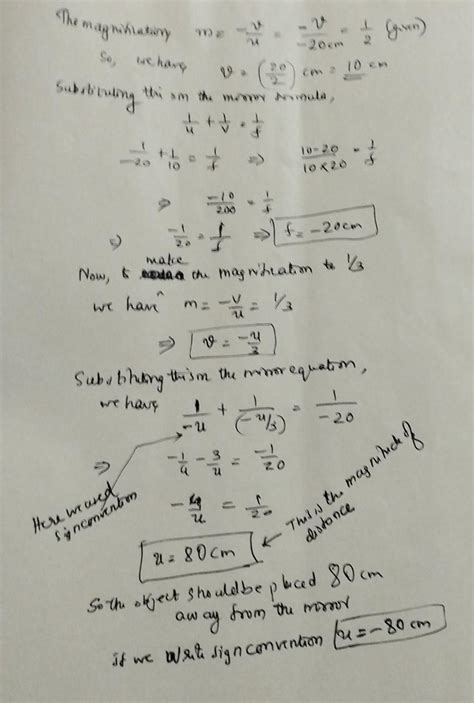 The magnification m = -v/u = -v/-20cm = 1/2 (given)
So, we have v = (20/2) cm = 10 cm
Substituting this in the mirror formula,
1/u + 1/v = 1/f
1/-20 + 1/10 = 1/f ⇒ 10-20/10×20 = 1/f
⇒ -10/200 = 1/f
⇒ -1/20 = 1/f ⇒ f = -20cm
make
Now, to the magnification to 1/3
we have m = -v/u = 1/3
⇒ v = -u/3
Substituting this in the mirror equation,
we have 1/-u + 1/(-u/3) = 1/-20
⇒ -1/u - 3/u = -1/20
Here we used sign convention
-4/u = 1/20
This is the magnitude of distance
u = 80 cm
So the object should be placed 80 cm
away from the mirror
if we write sign convention u = -80 cm